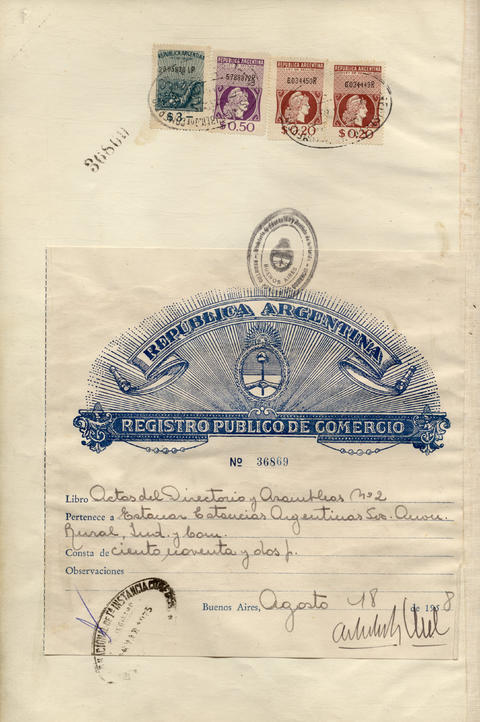 REPUBLICA ARGENTINA REPUBLICA ARGENTINA REPUBLICA ARGENTINA REPUBLICA ARGENTINA
6.034450R 6.034449R
$ 3 $ 0.50 $ 0.20 $ 0.20
36869
BUENOS AIRES
REPUBLICA ARGENTINA
REGISTRO PUBLICO DE COMERCIO
Nº 36869
Libro Actas del Directorio y Asambleas Nº 2
Pertenece a Estancias Argentinas Soc. Anón.
Rural, Ind. y Com.
Consta de ciento noventa y dos p.
Observaciones
Buenos Aires, Agosto 18 de 1958